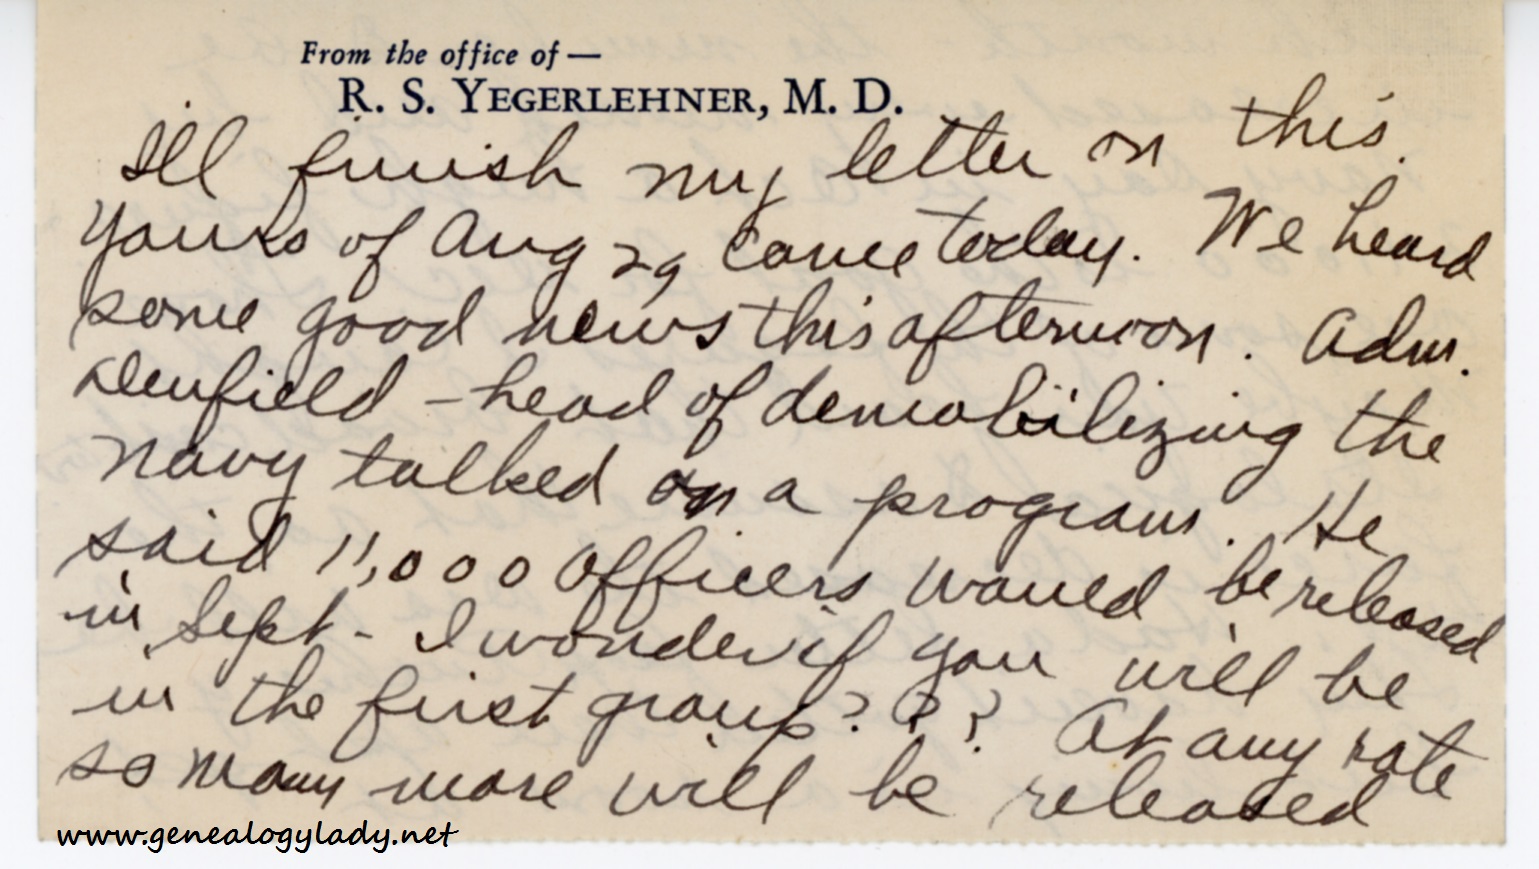 From the office of—
R. S. YEGERLEHNER, M. D.
I'll finish my letter on this.
Yours of Aug 29 came today. We heard
some good news this afternoon. Adm.
Denfield – head of demobilizing the
Navy talked on a program. He
said 11,000 officers would be released
in Sept – I wonder if you will be
in the first group??? At any rate
so many more will be released
www.genealogylady.net